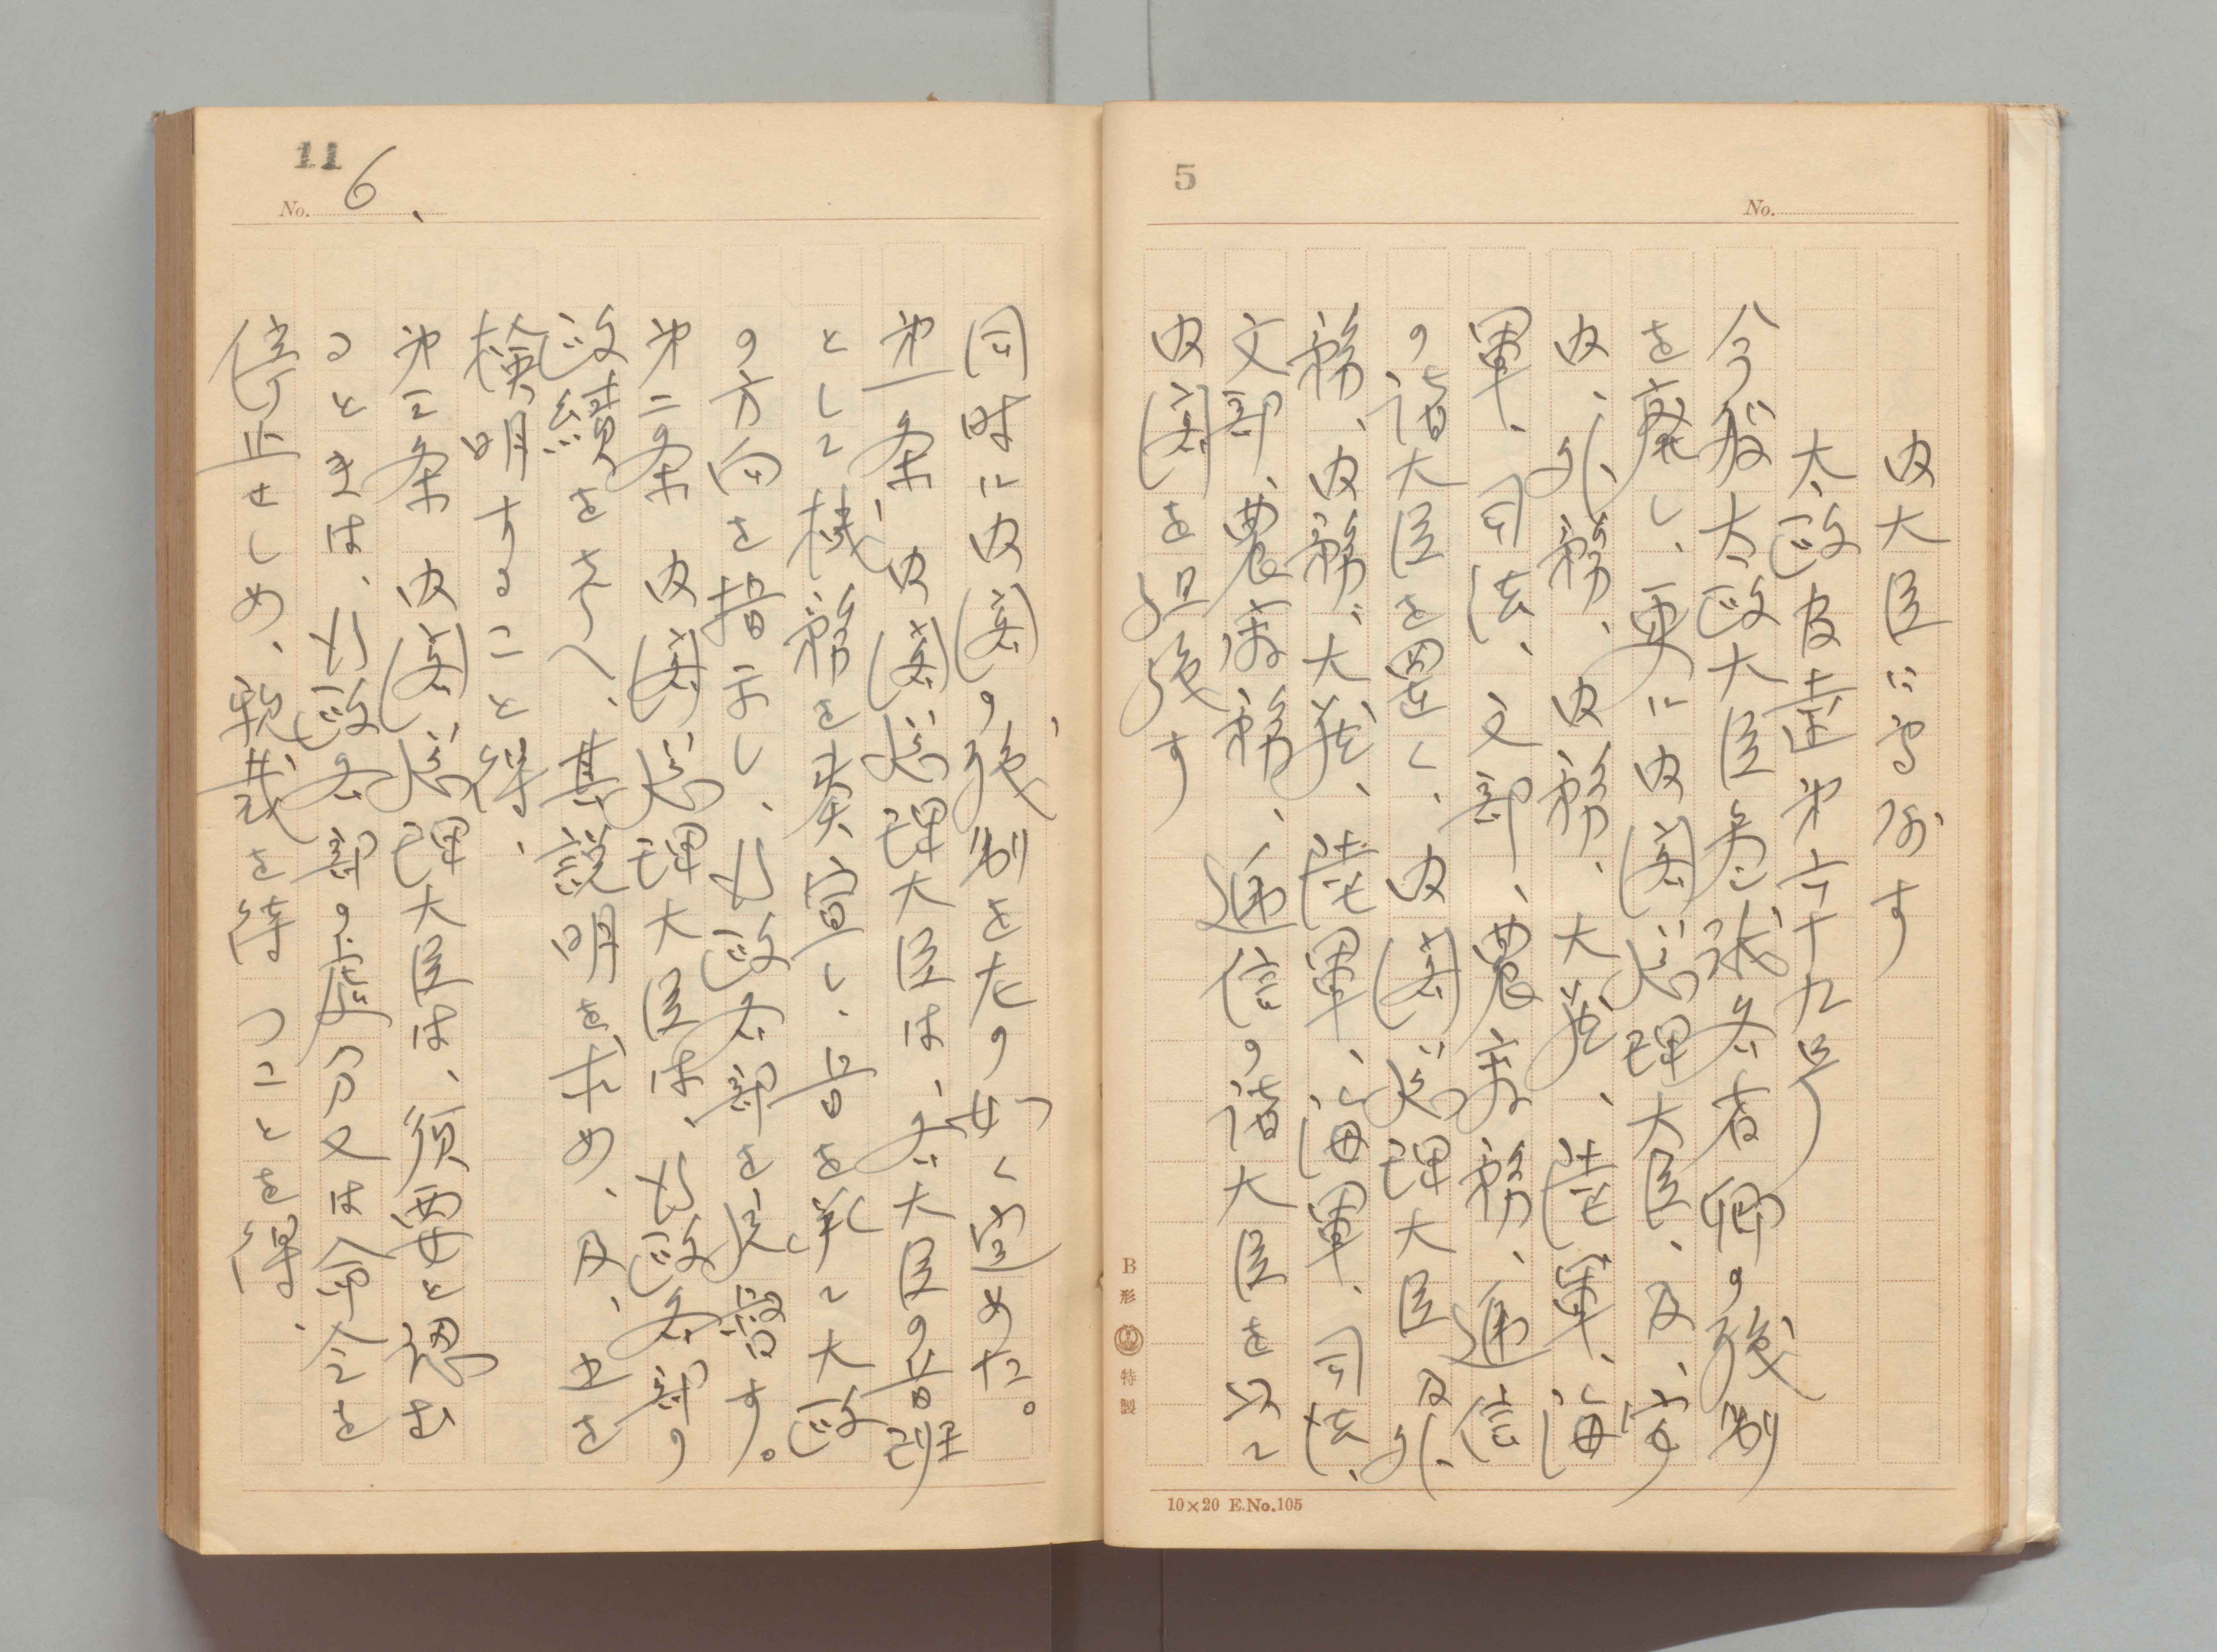 5
No.
内大臣に専任す
太政官達第六十九号
今般太政大臣参議各省卿の職制
を廃し、更に内閣総理大臣、及、宮
内、外務、内務、大蔵、陸軍、海
軍、司法、文部、農商務、逓信
の諸大臣を置く、内閣総理大臣及外
務、内務、大蔵、陸軍、海軍、司法、
文部、農商務、逓信の諸大臣を以て
内閣を組織す
B形 特製
10×20 E.No.105
11
No. 6.
同時に内閣の職制を左の如く定めた。
第一条、内閣総理大臣は、各大臣の首班
として機務を奏宣し、旨を承て大政
の方向を指示し、行政各部を統督す。
第二条 内閣総理大臣は、行政各部の
政績を考へ、其説明を求め、及、之を
検明することを得、
第三条 内閣総理大臣は、須要と認む
るときは、行政各部の処分又は命令を
停止せしめ、親裁を待つことを得、